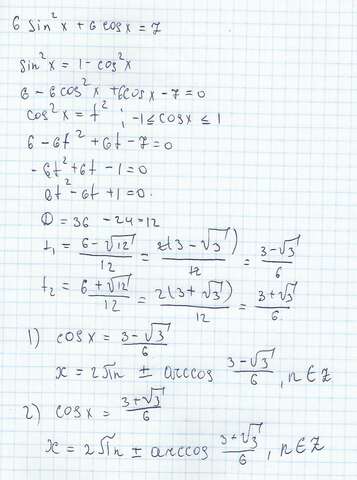 6 sin²x + 6 cosx = 7
sin²x = 1 - cos²x
6 - 6cos²x + 6cosx - 7 = 0
cos²x = t² ; -1 ≤ cosx ≤ 1
6 - 6t² + 6t - 7 = 0
-6t² + 6t - 1 = 0
6t² - 6t + 1 = 0.
D = 36 - 24 = 12
t₁ = (6 - √12)/12 = 2(3 - √3)/12 = (3 - √3)/6
t₂ = (6 + √12)/12 = 2(3 + √3)/12 = (3 + √3)/6.
1) cosx = (3 - √3)/6
x = 2πn ± arccos (3 - √3)/6, n ∈ Z
2) cosx = (3 + √3)/6
x = 2πn ± arccos (3 + √3)/6, n ∈ Z